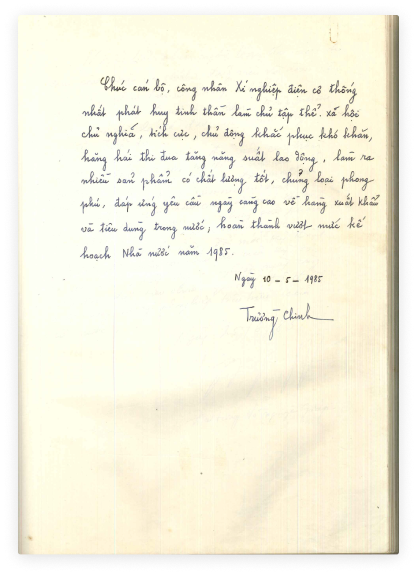 Chúc cán bộ, công nhân Xí nghiệp điện cơ thống
nhất phát huy tinh thần làm chủ tập thể xã hội
chủ nghĩa, tích cực, chủ động khắc phục khó khăn,
hăng hái thi đua tăng năng suất lao động, làm ra
nhiều sản phẩm có chất lượng tốt, chủng loại phong
phú, đáp ứng yêu cầu ngày càng cao về hàng xuất khẩu
và tiêu dùng trong nước, hoàn thành vượt mức kế
hoạch Nhà nước năm 1985.
Ngày 10 - 5 - 1985
Trường Chinh